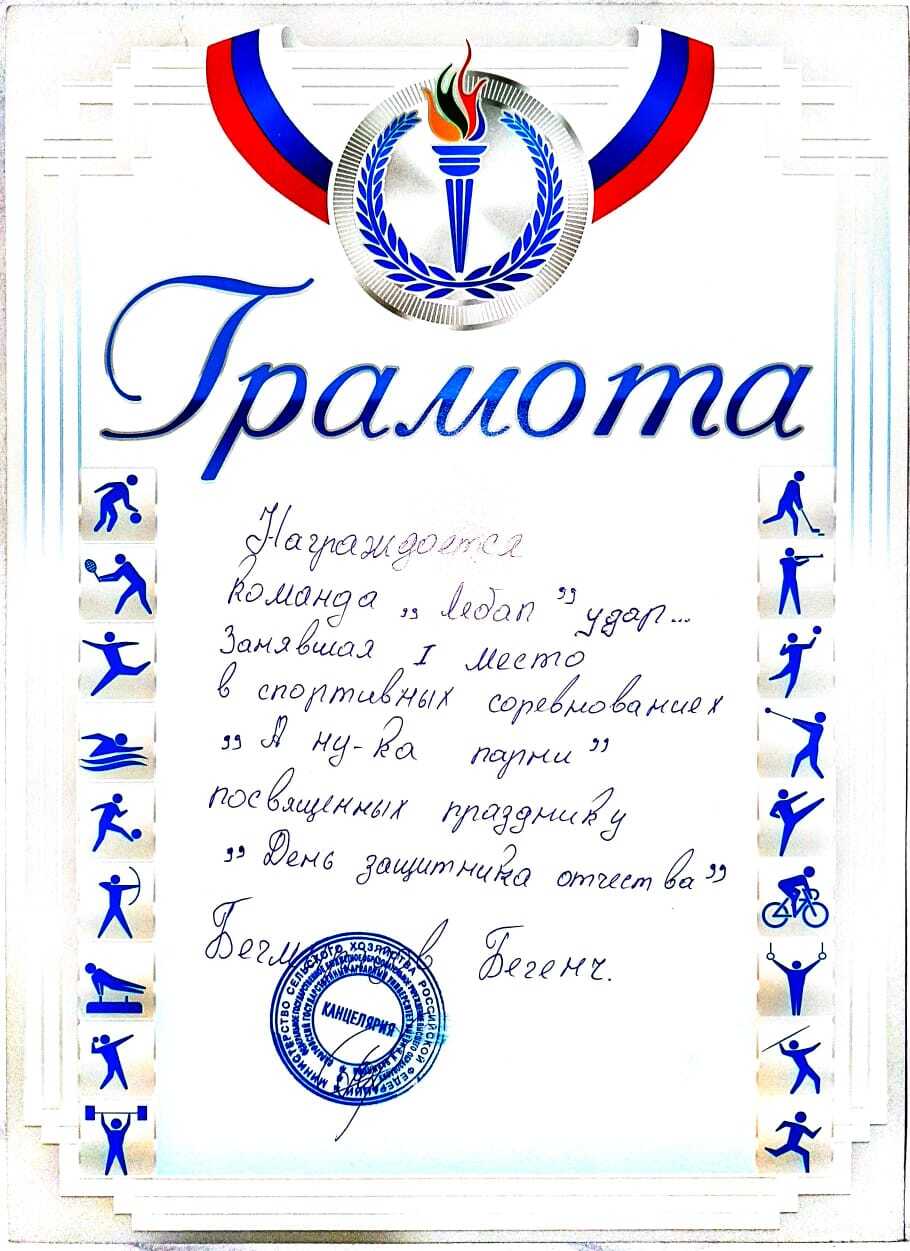 Грамота
Награждается
команда „Лебап” удар...
Занявшая I место
в спортивных соревнованиях
„А ну-ка парни”
посвященных празднику
„День защитника отчества”
Бегенч.
МИНИСТЕРСТВО СЕЛЬСКОГО ХОЗЯЙСТВА РОССИЙСКОЙ ФЕДЕРАЦИИ
КАНЦЕЛЯРИЯ